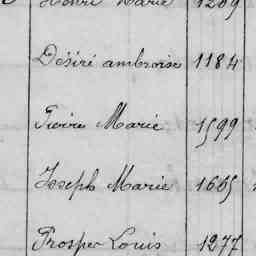 Henri Marie 1209
Désiré ambroise 1184
Pierre Marie 1599
Joseph Marie 1665
Prosper Louis 1277